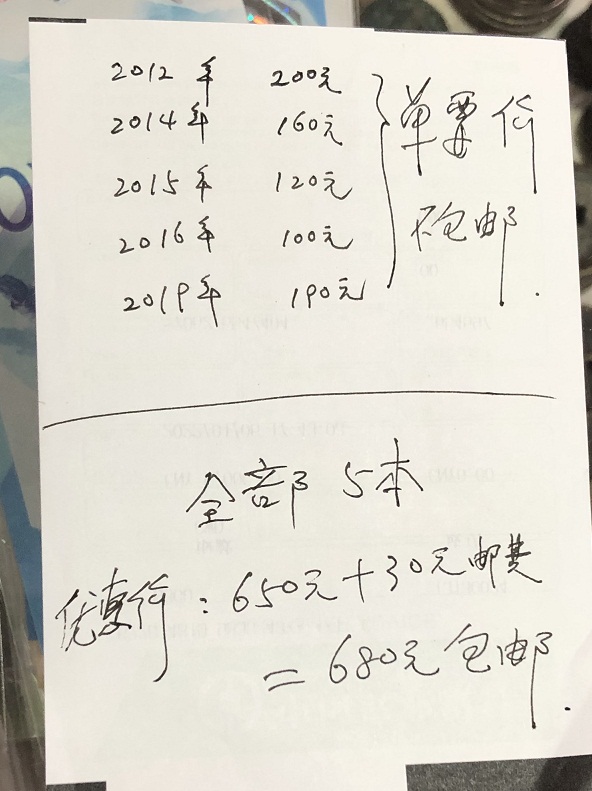 2012年 200元
2014年 160元
2015年 120元
2016年 100元
2019年 190元
单要价
不包邮.
全部5本
优惠价:650元+30元邮费
=680元包邮.